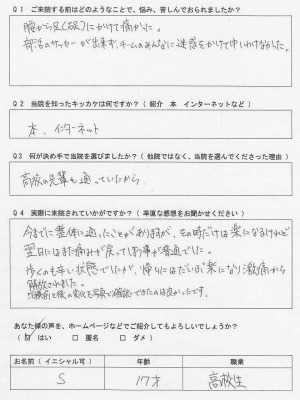 Q1 ご来院する前はどのようなことで、悩み、苦しんでおられましたか?
腰から足(右足)にかけて痛かった。
部活のサッカーが出来ず、チームのみんなに迷惑をかけて申しわけなかった。
Q2 当院を知ったキッカケは何ですか?( 紹介 本 インターネットなど )
本、インターネット
Q3 何が決め手で当院を選びましたか?( 他院ではなく、当院を選んでくださった理由 )
高校の先輩も通っていたから
Q4 実際に来院されていかがですか?( 率直な感想をお聞かせください )
今までに整体に通ったことがありますが、その時だけは楽になるけれど
翌日にはまた痛みが戻ってしまう事が普通でした。
歩くのも辛い状態でしたが、帰りにはだいぶ楽になり激痛から
解放されました。
治療前と後の変化を写真で確認できたのは良かったです。
あなた様の声を、ホームページなどでご紹介してもよろしいでしょうか?
はい □ 匿名 □ ダメ )
お名前( イニシャル可 ) 年齢 職業
S 17才 高校生